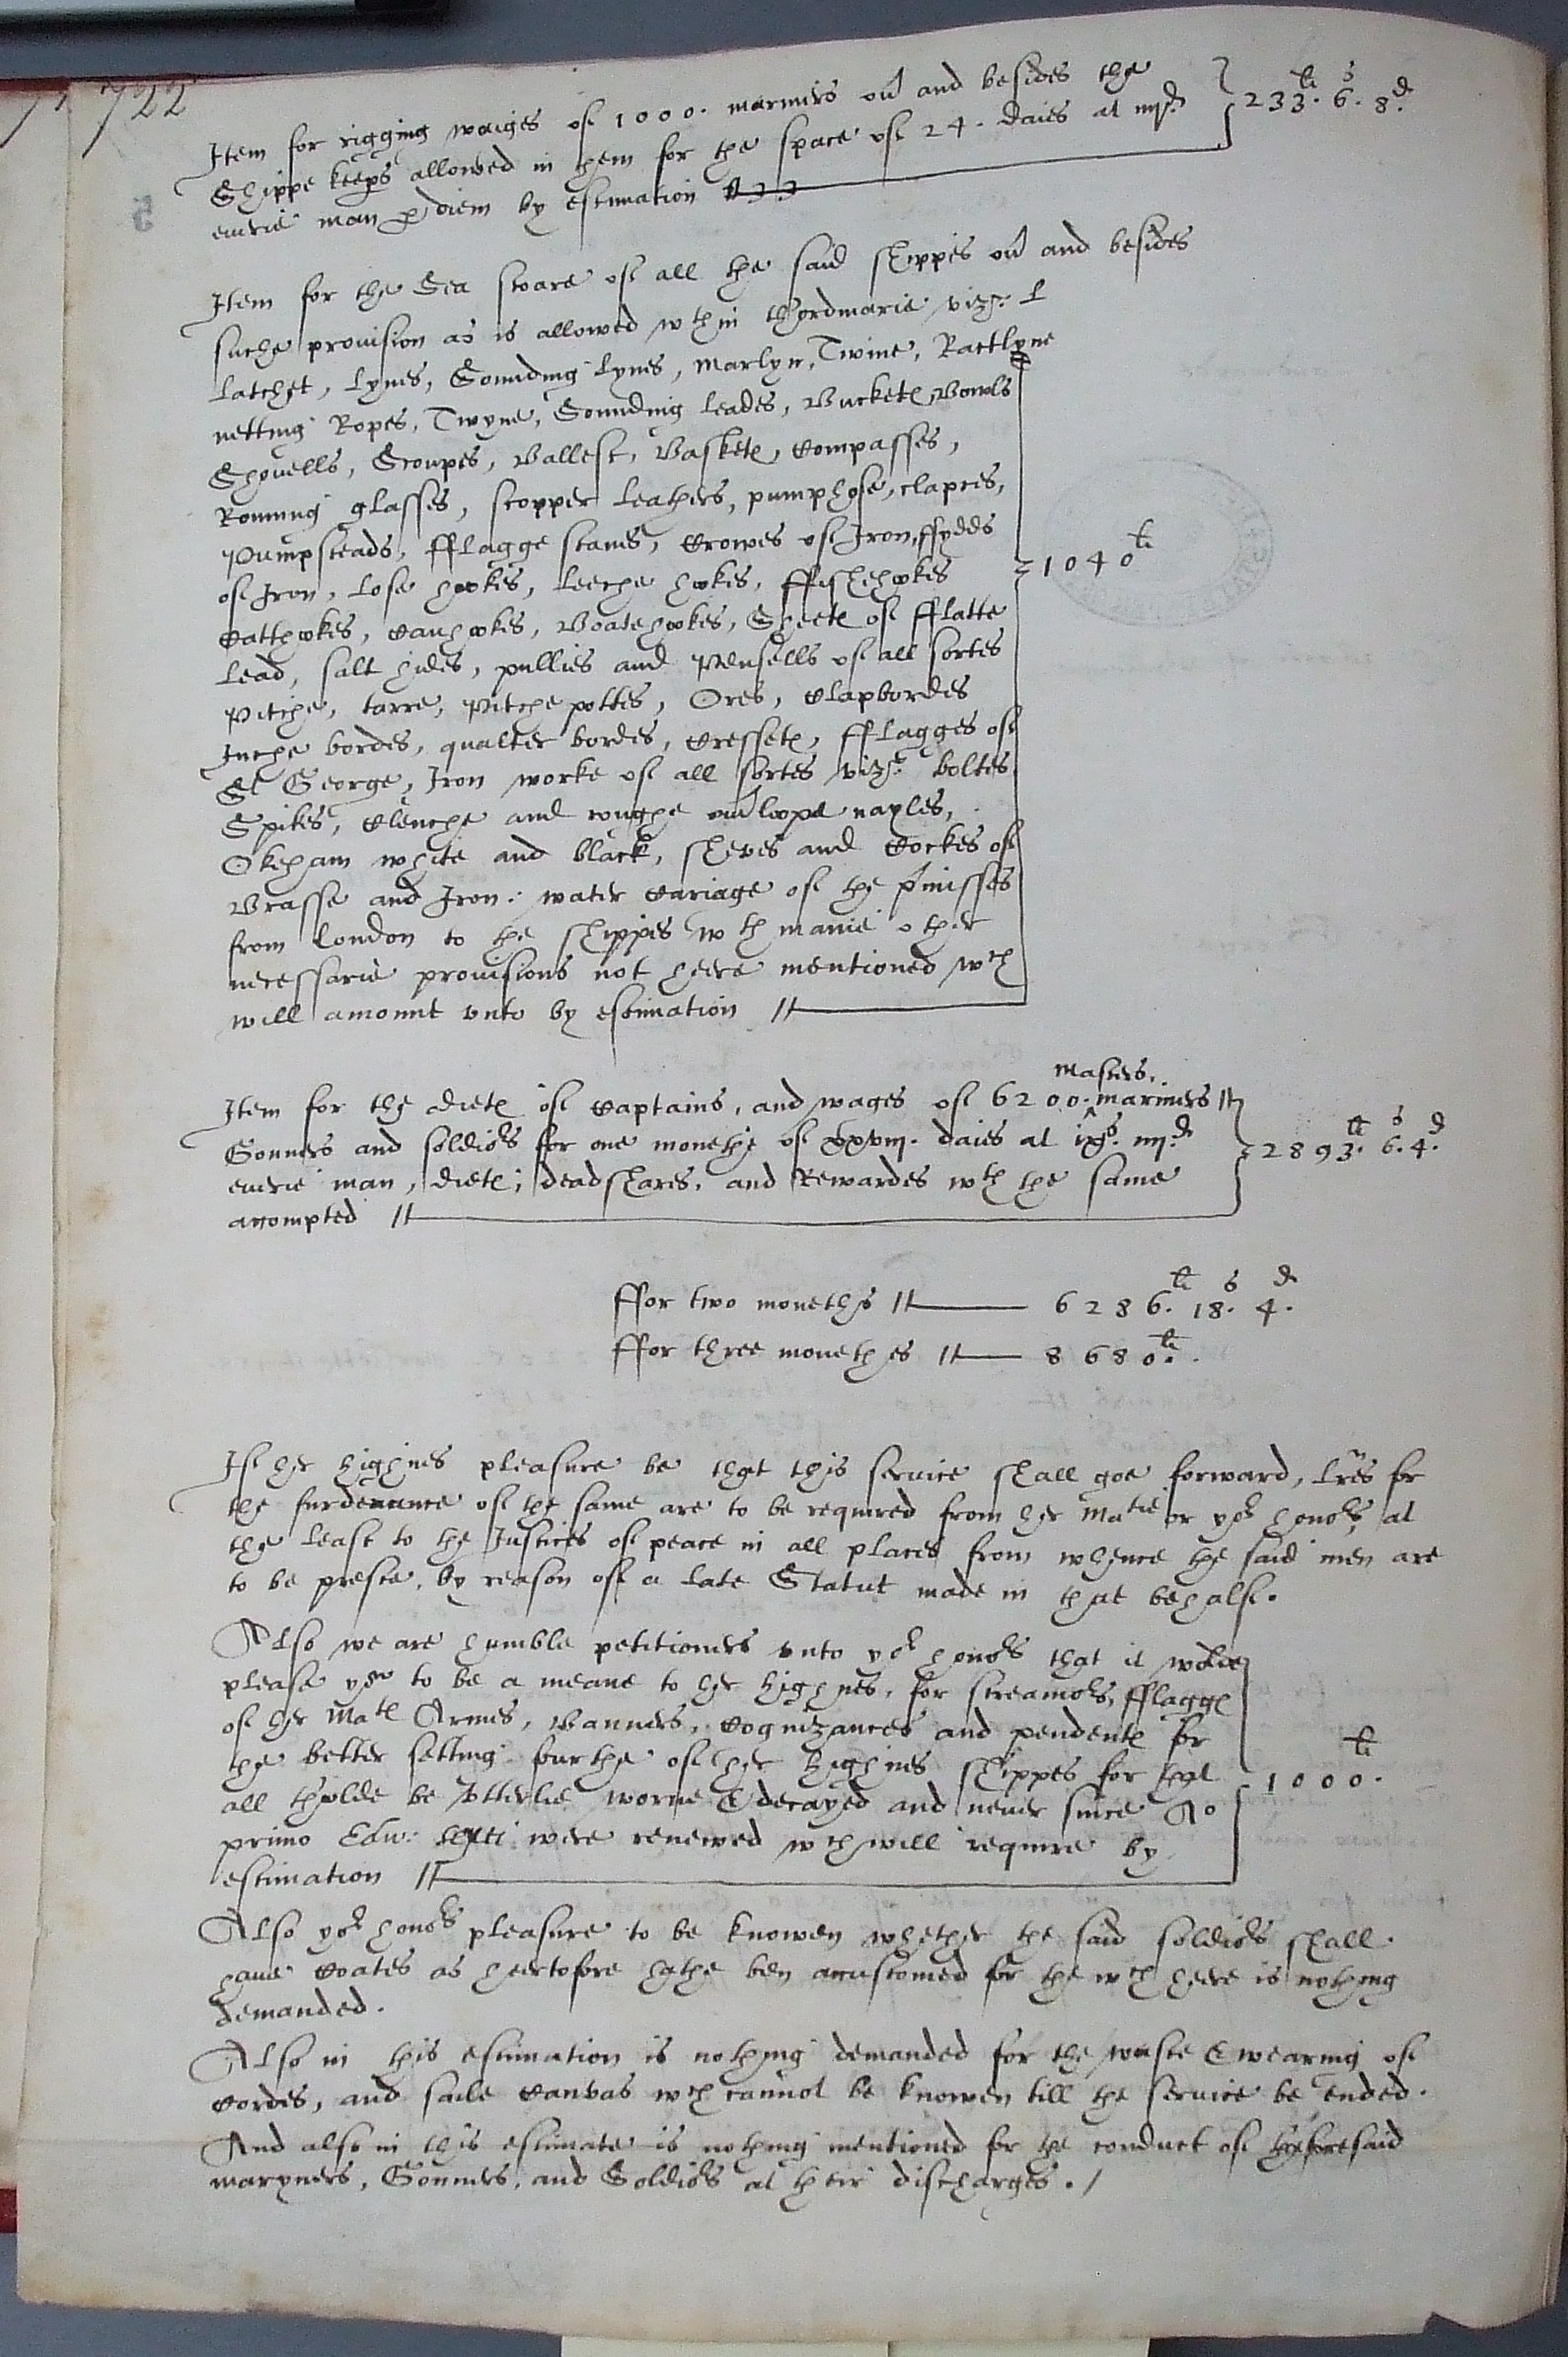 722
Item for rigging waiges of 1000. mariners ou~ and besides the
Shippe keeps allowed in them for the space of 24. daies at iiijd
euerie man p diem by estimation
233li. 6s. 8d.
Item for the Sea stoare of all the said shippes ou~ and besides
suche prouision as is allowed wthin thordinarie vizt.
latchet, lynes, Sounding lynes, marlyn, Twine, Rattlyne
netting Ropes, Twyne, Sounding leades, Buckete, Bowls
Shouells, Scoupes, Ballest, Baskete, Compasses,
Running glasses, scopper leathers, pumphose, clapers,
Pumpsteads, fflagge staues, Crowes of Iron, ffydds
of Iron, lose hookes, leeche hookes, ffishehookes
Catthookes, Canhookes, Boatehookes, Sheete of fflatte
lead, salt hides, pullies and Pensells of all sortes
Pitche, tarre, Pitche pottes, Ores, Clapbordes
Inche bordes, qualter bordes, Cressete, fflagges of
St George, Iron worke of all sortes vizt. boltes
Spikes, Clenche and roughe ou~loope nayles,
Okeham white and black, sheves and Cockes of
Brasse and Iron: water Cariage of the p~visses
from London to the shippes wth manie other
necessarie prouisions not heere mentioned wch
will amount vnto by estimation
1040li
Item for the diete of Captains, and wages of 6200. masters, mariners
Gonners and soldiors for one monethe of xxviij. daies at ixs. iiijd
euerie man, diete, deadshares, and Rewardes wth the same
accompted
2893li. 6s. 4d.
ffor two moneths 6286li. 18s. 4d.
ffor three monethes 8680li.
If her highnes pleasure be that this seruice shall goe forward, lres for
the furderance of the same are to be required from her Matie or yor honors, at
the least to the Justices of peace in all places from whence the said men are
to be preste, by reason of a late Statut made in that behalf.
Also we are humble petitioners vnto yor honors that it wolde
please you to be a meane to her highnes, for streamors, fflagge
of her Mate Armes, Banners, Cognizances and pendente for
the better setting fourthe of her highnes shippes for that
all tholde be vtterlie worne & decayed and neuer since Ao
primo Edw: sexti were renewed wch will require by
estimation
1000li.
Also yor honors pleasure to be knowen whether the said soldiors shall
haue Coates as heertofore hathe ben accustomed for the wch heere is nothing
demanded.
Also in this estimation is nothing demanded for the waste & wearing of
Cordes, and saile Canvas wch cannot be knowen till the seruice be ended.
And also in this estimate is nothing mentioned for the conduct of theforesaid
maryners, Gonners, and Soldiors at their discharges./